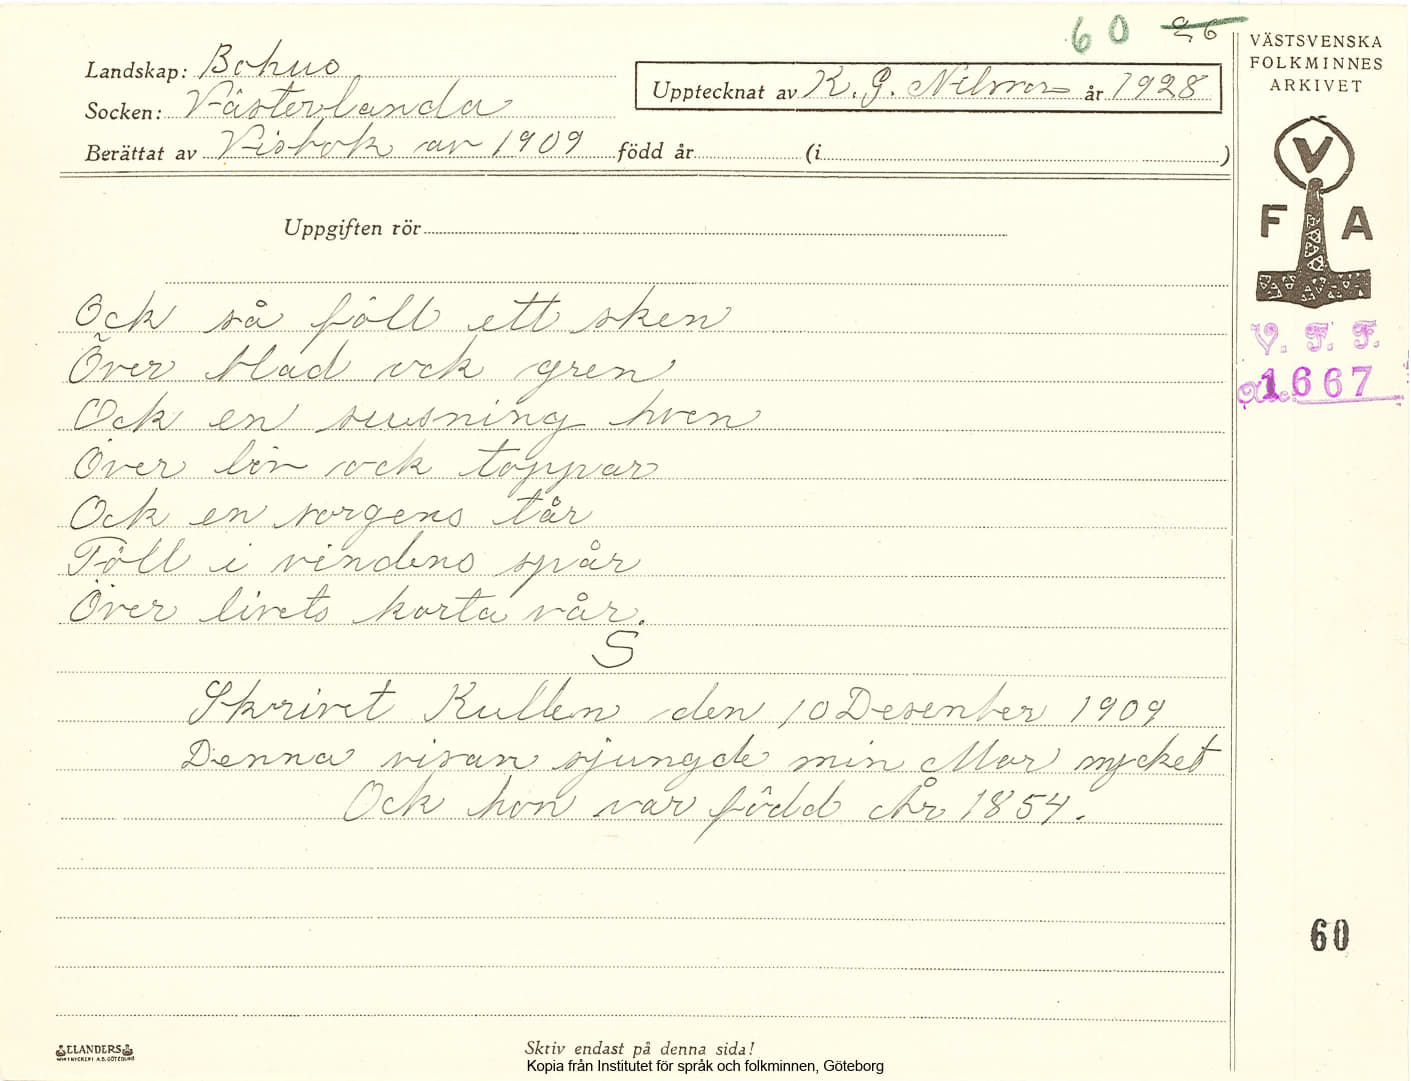 60 96
VÄSTSVENSKA
FOLKMINNES
ARKIVET
Landskap: Bohus
Upptecknat av K. G. Nilsson år 1928
Socken: Västerlanda
Berättat av Visbok av 1909 född år (i )
V
F A
Uppgiften rör
V. F. F.
1667
Ock så föll ett sken
Över blad ock gren
Ock en susning hven
Över löv ock toppar
Ock en sorgens tår
Föll i vindens spår
Över livets korta vår.
S
Skrivet Kullen den 10 Desenber 1909
Denna visan sjungde min Mor mycket
Ock hon var född År 1854.
60
ELANDERS
Skriv endast på denna sida!
Kopia från Institutet för språk och folkminnen, Göteborg